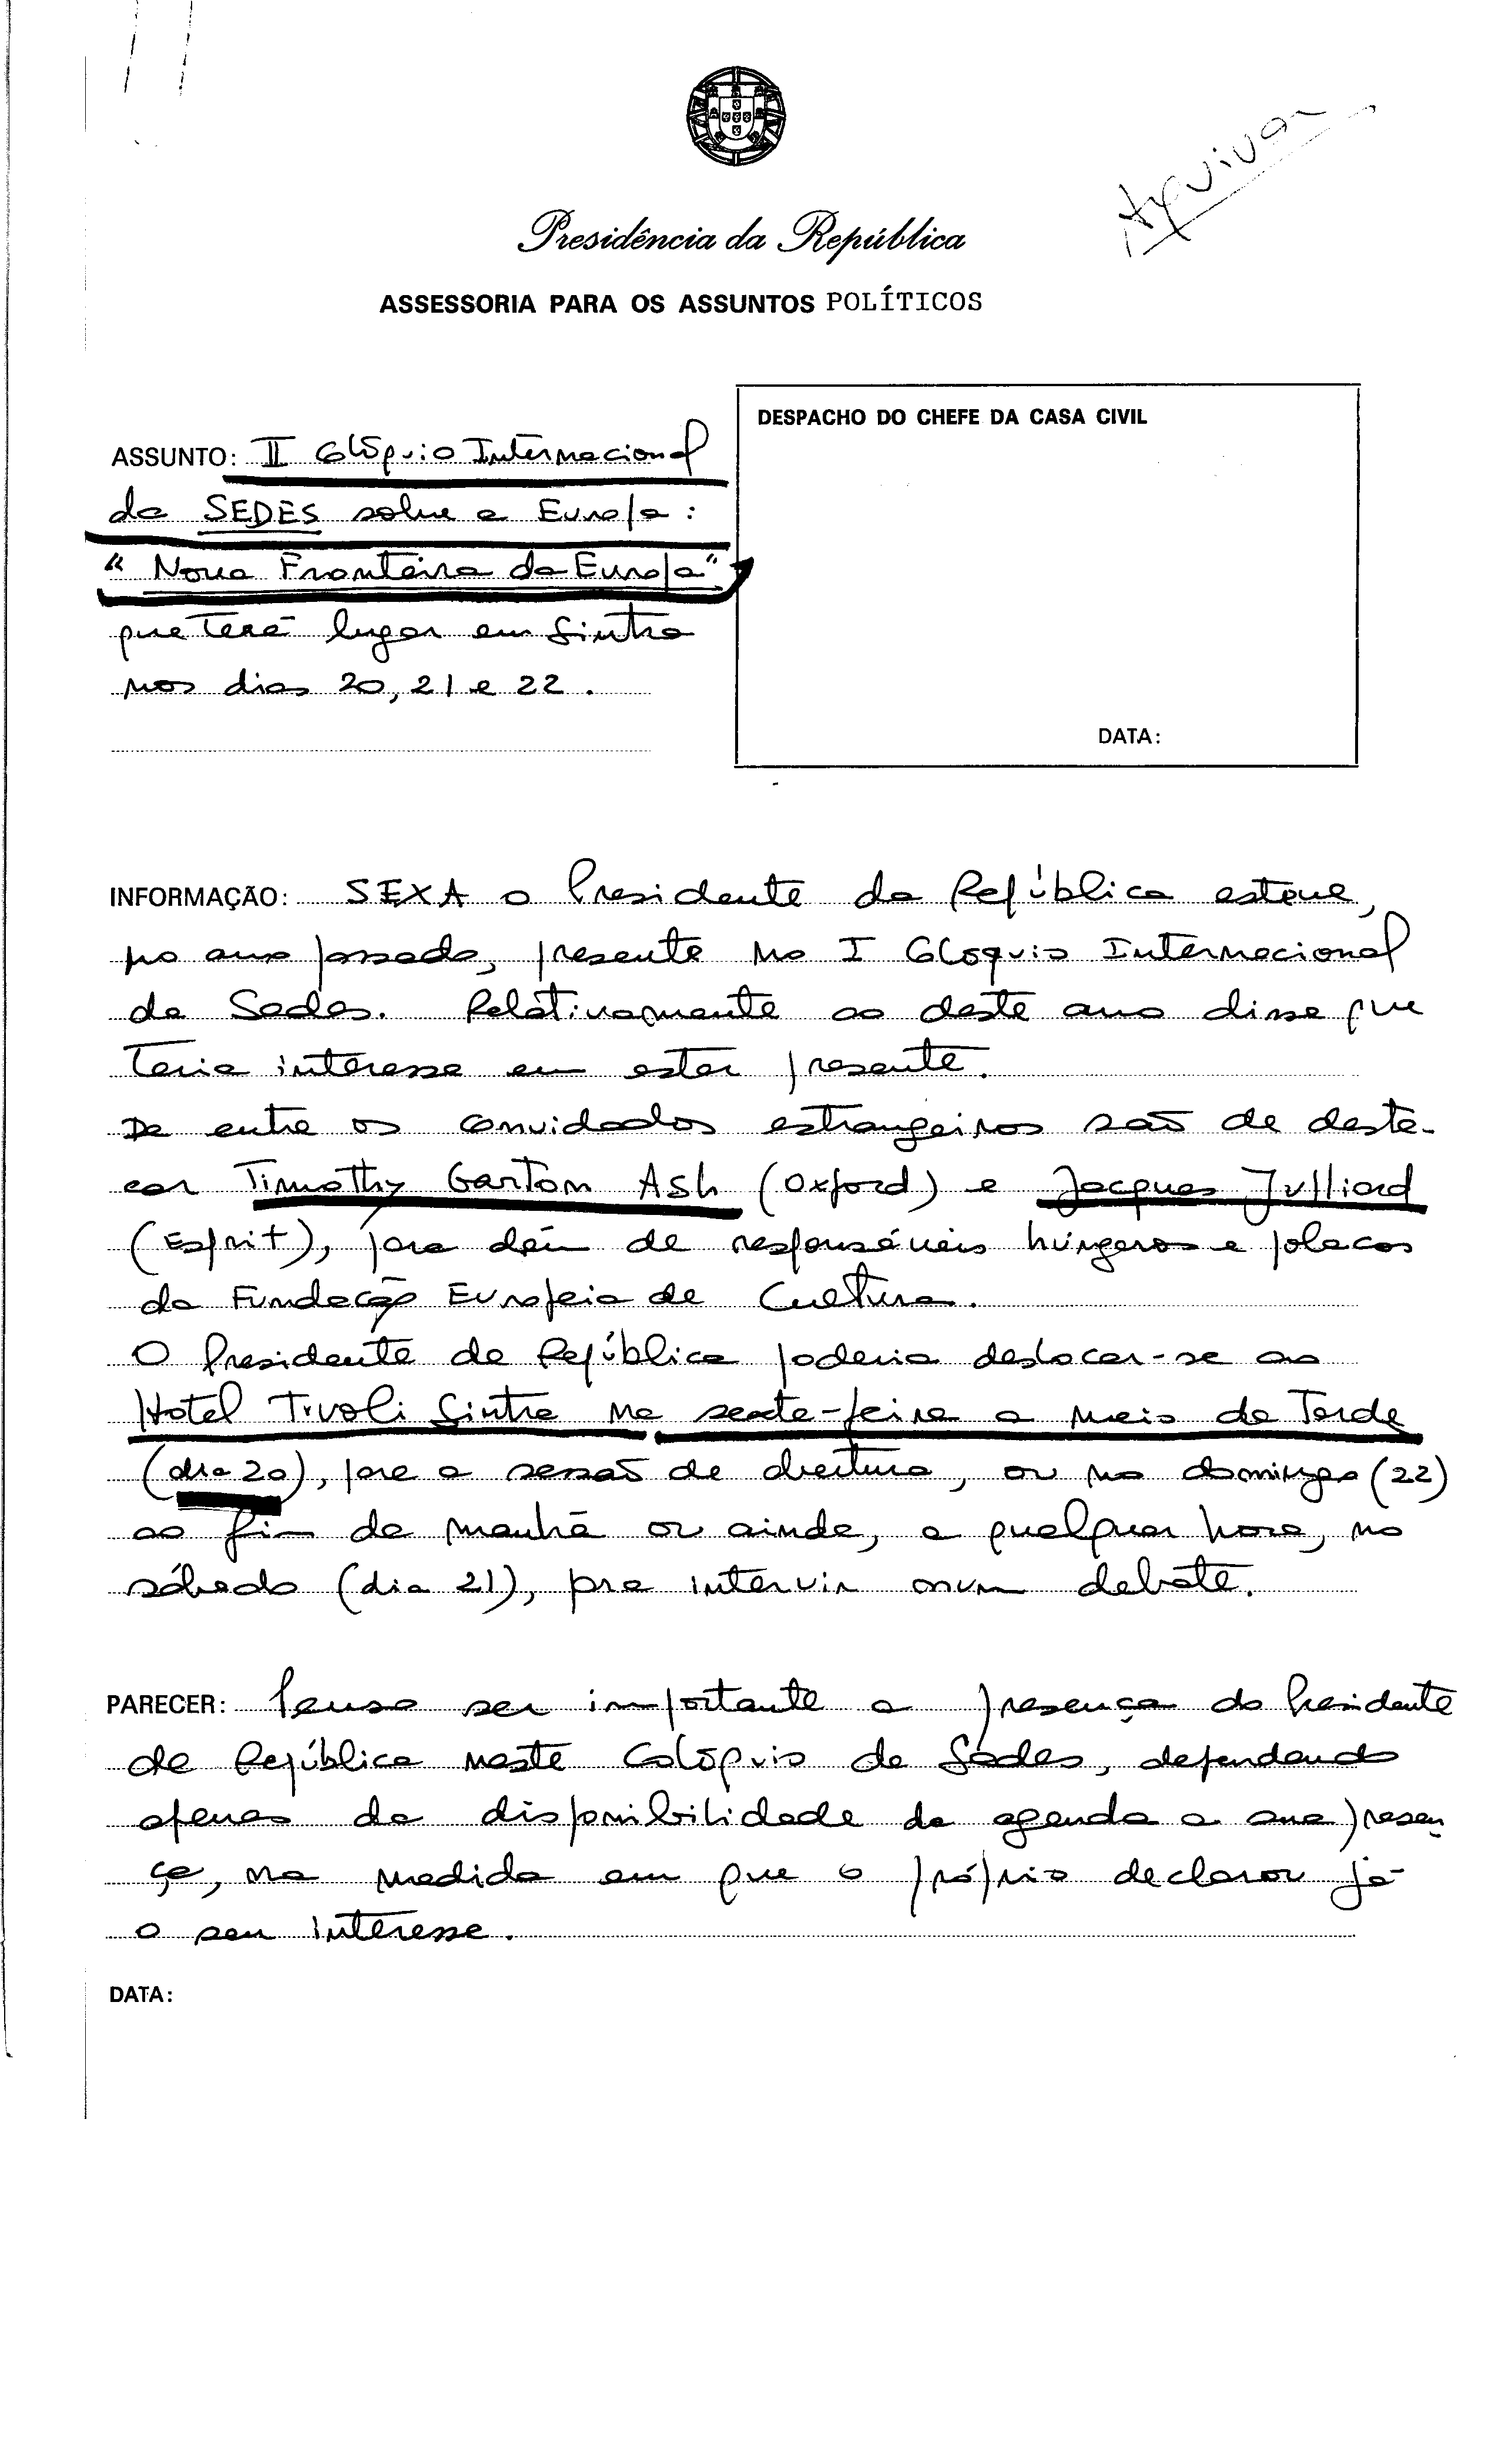 Arquivar
Presidência da República
ASSESSORIA PARA OS ASSUNTOS POLÍTICOS
DESPACHO DO CHEFE DA CASA CIVIL
ASSUNTO: II Colóquio Internacional
da SEDES sobre a Europa:
"Nova Fronteira da Europa"
que terá lugar em Sintra
nos dias 20, 21 e 22.
DATA:
INFORMAÇÃO: SEXA o Presidente da República esteve,
no ano passado, presente no I Coloquio Internacional
da Sedes. Relativamente ao deste ano disse que
teria interesse em estar presente.
De entre os convidados estrangeiros são de desta-
car Timothy Garton Ash (Oxford) e Jacques Julliard
(Esprit), para além de responsáveis húngaros e polacos
da Fundação Europeia de Cultura.
O Presidente da República poderia deslocar-se ao
Hotel Tivoli Sintra na sexta-feira a meio da tarde
(dia 20), para a sessão de abertura, ou no domingo (22)
ao fim da manhã ou ainda, a qualquer hora, no
sábado (dia 21), pra intervir num debate.
PARECER: Penso ser importante a presença do Presidente
da República neste Colóquio da Sedes, dependendo
apenas da disponibilidade da agenda a sua presen
ça, na medida em que o próprio declarou já
o seu interesse.
DATA: